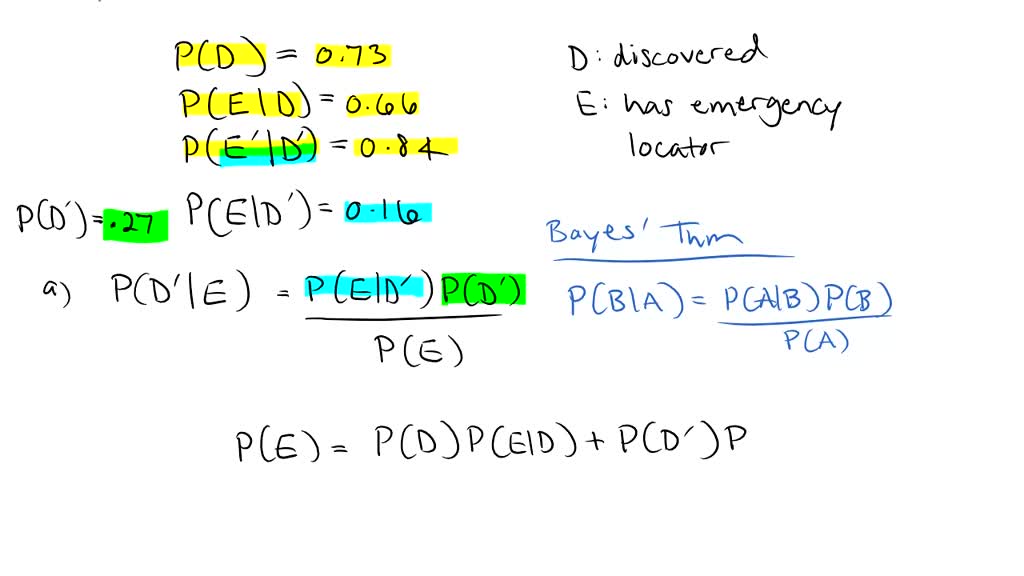 P(D) = 0.73
P(E|D) = 0.66
P(E′|D′) = 0.84
D: discovered
E: has emergency
locator
P(D′) = .27
P(E|D′) = 0.16
Bayes' Thm
a) P(D′|E) = P(E|D′) P(D′)
P(E)
P(B|A) = P(A|B) P(B)
P(A)
P(E) = P(D) P(E|D) + P(D′) P